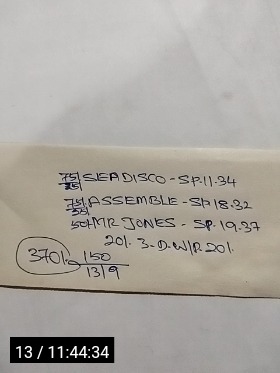 75/25 SEADISCO - SP. 11.34
75/50 ASSEMBLE - SP 18.32
50 MR JONES - SP. 19.37
201. 3-D.W/P. 201.
3701. 150
13/9
13 / 11:44:34